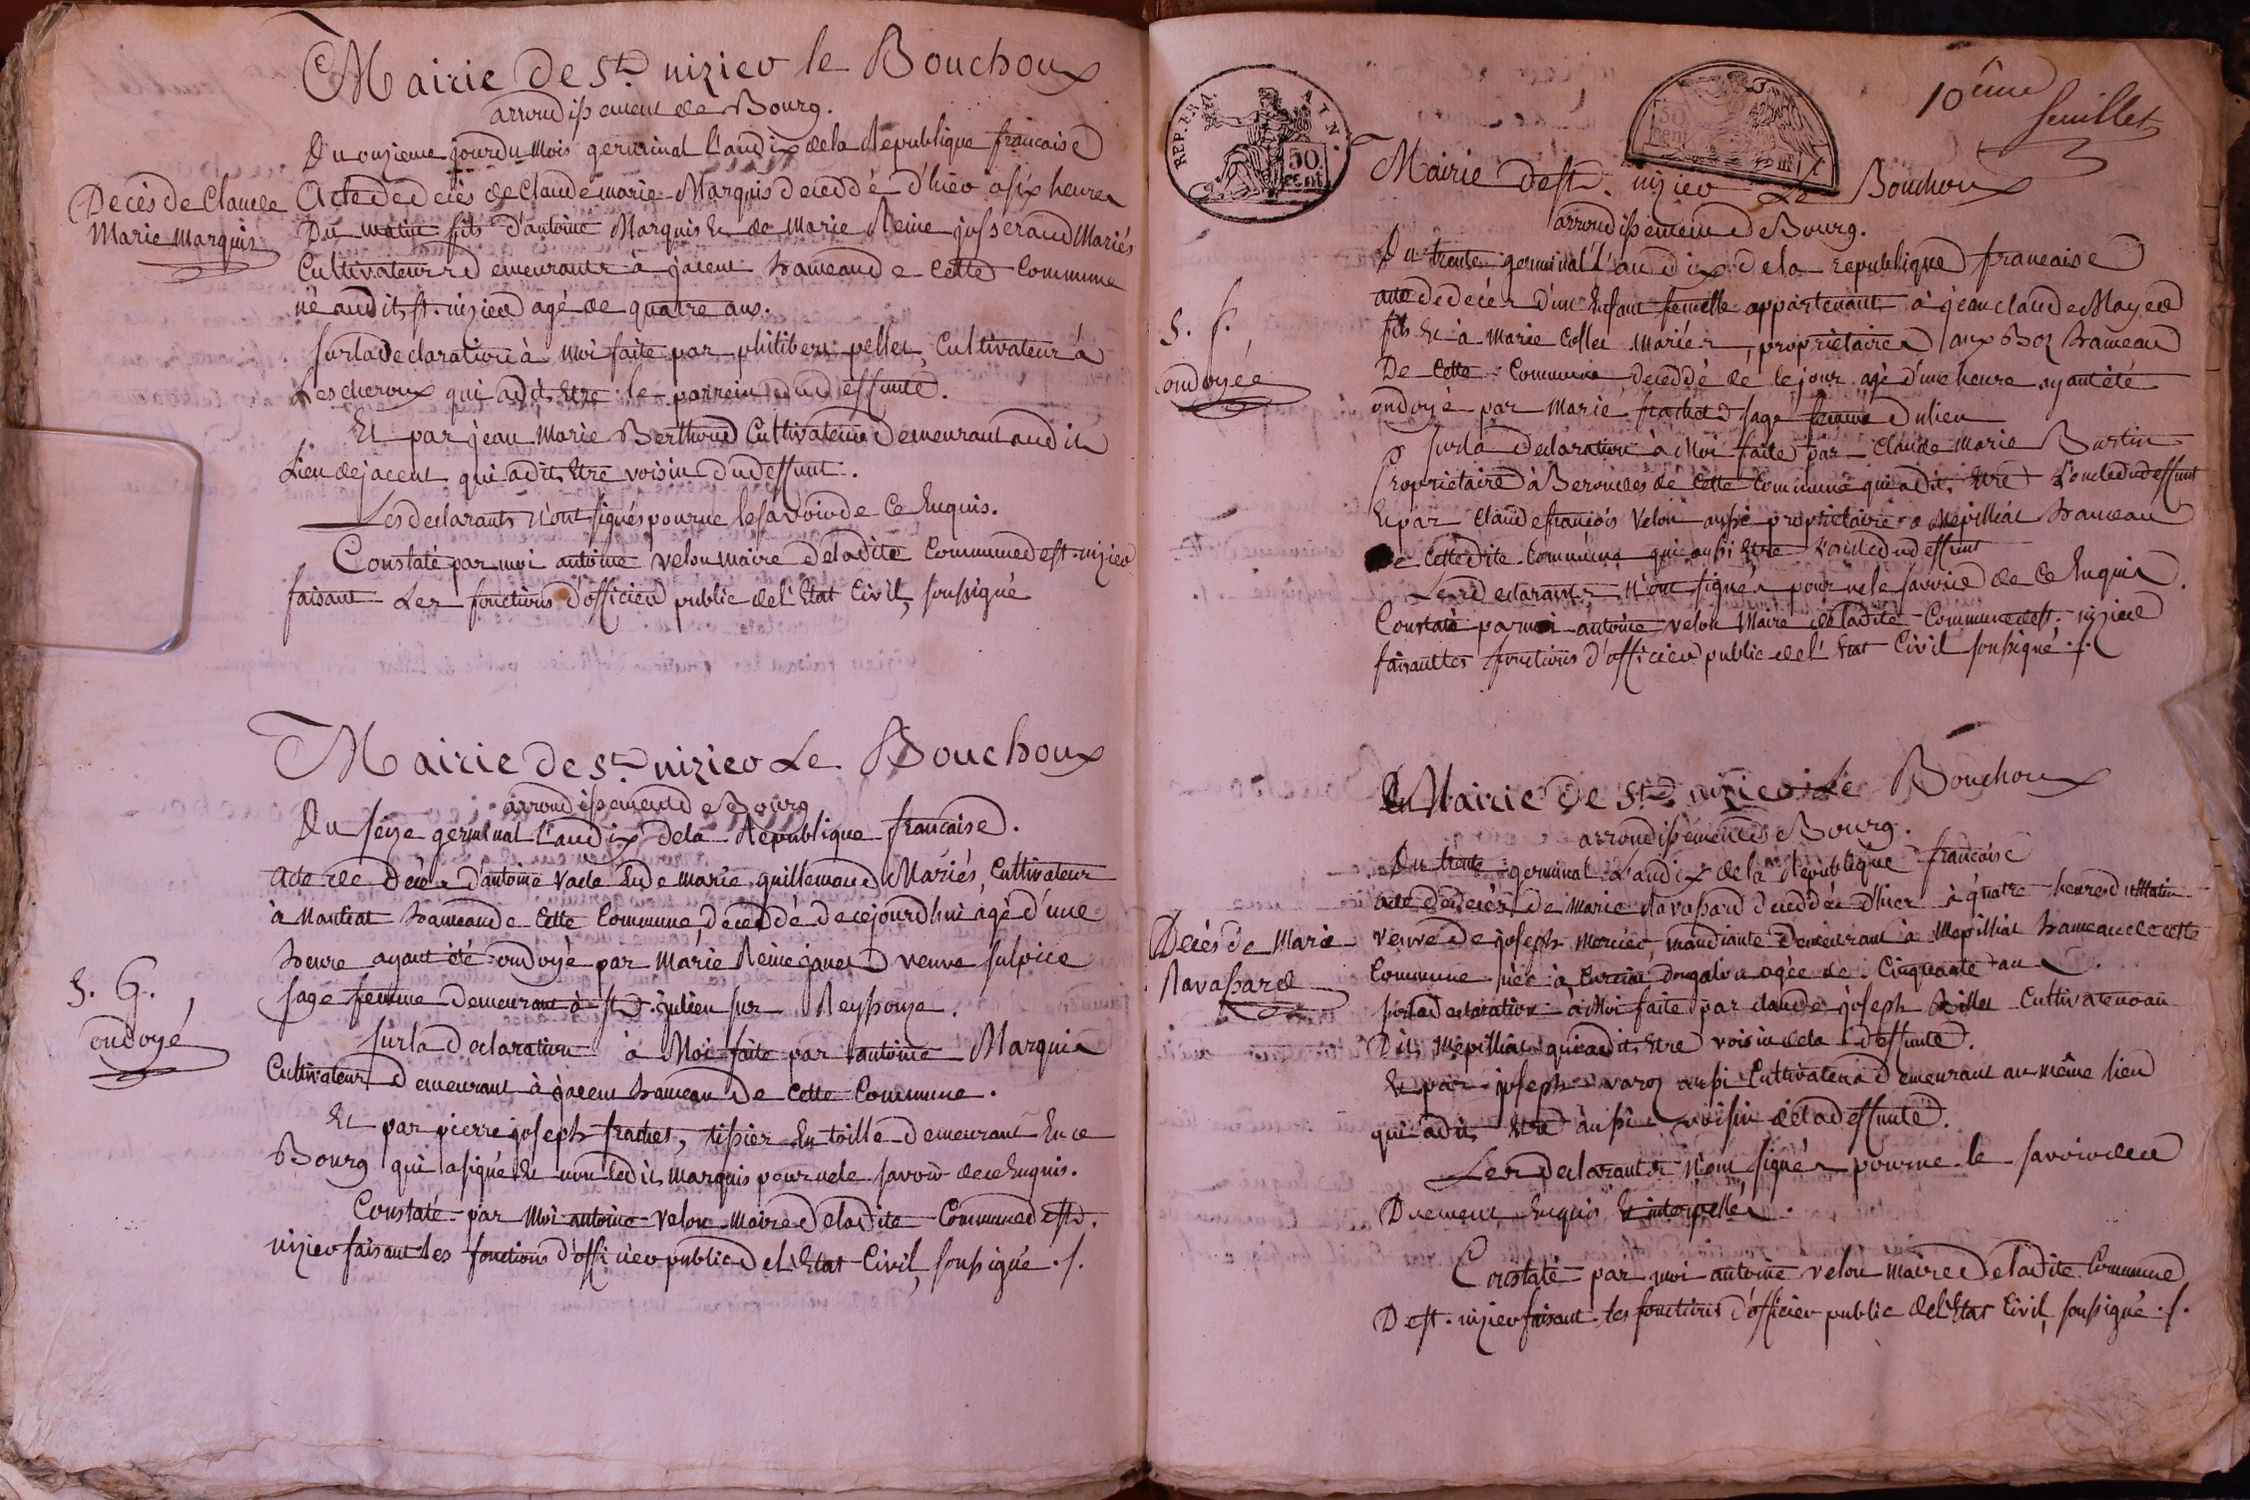 Mairie de St. nizier le Bouchoux
arrondissement de Bourg.
Du onzieme jour du mois germinal l'an dix de la République francaise
Decès de Claude
Marie Marquis
Acte de decès de Claude marie Marquis deceddé d'hier a six heures
Du matin fils d'antoine Marquis Et de Marie Reine josserand Mariés
Cultivateurs demeurants à jacent hameau de cette Commune
né audit st. nizier agé de quatre ans.
sur la declaration à moi faite par philibert pellet, Cultivateur à
Lescheroux qui a dit Etre le parrein du deffunt.
Et par jean Marie Berthoud Cultivateur Demeurant audit
Lieu de jacent qui a dit Etre voisin du deffunt.
Les declarants n'ont signés pour ne le savoir de Ce Enquis.
Constaté par moi antoine velon maire de ladite Commune de st. nizier
faisant Les fonctions d'officier public de l'Etat Civil, soussigné
Mairie de St. nizier Le Bouchoux
arrondissement de Bourg
Du seize germinal l'an dix de la République francaise.
S. G.
ondoyé
acte de decès d'antoine vade Et de marie guillemaud Mariés, Cultivateur
à Mantiat hameau de Cette Commune, déceddé de cejourd'hui agé d'une
heure ayant été ondoyé par Marie Reine janet veuve sulpice
sage femme demeurant à st. julien sur Reyssouze.
sur la declaration à Moi faite par antoine Marquis
Cultivateur demeurant à jacent hameau de Cette Commune.
Et par pierre joseph frachet, tissier En toille demeurant En ce
Bourg qui a signé Et non ledit Marquis pour ne le savoir de ce Enquis.
Constaté par Moi antoine velon maire de ladite Commune de st.
nizier faisant les fonctions d'officier public de l'Etat Civil, soussigné ./.
REP. FRA. ATN.
50
cent
50
cent
10ême
feuillet
Mairie de st. nizier Le Bouchoux
arrondissement de Bourg.
Du trente germinal l'an dix de la republique francaise
S. f.
ondoyée
acte de decès d'un Enfant femelle appartenant à jean claude Mayer
fils Et à Marie Collet Mariés, propriétaires aux Boz hameau
De Cette Commune deceddé de le jour agé d'une heure ayant été
ondoyé par Marie frachet sage femme du lieu
sur la declaration à Moi faite par Claude Marie Burtin
Propriétaire à Beroudes de Cette Commune qui a dit Etre L'oncle du deffunt
Et par Claude francois Velon aussi propriétaire a Mépilliat hameau
De Cette dite Commune qui aussi Etre du deffunt
Les declarants n'ont signés pour ne le savoir de Ce Enquis.
Constaté par moi antoine velon Maire de ladite Commune de st. nizier
faisant les fonctions d'officier public de l'Etat Civil soussigné ./.
Mairie de St. nizier Le Bouchoux
arrondissement de Bourg.
Du trente germinal L'an dix de la République francaise
Decès de Marie
Ravassard
acte de decès de Marie Ravassard deceddée d'hier à quatre heures du Matin
veuve de joseph mercier, mandiante demeurant à Mépilliat hameau de cette
Commune née à agée de Cinquante ans.
sur la declaration à Moi faite par claude joseph Cultivateur au
Dit Mépilliat qui a dit Etre voisin de la deffunte.
Et par joseph varoz aussi Cultivateur demeurant au même lieu
qui a dit Etre aussi voisin de la deffunte.
Les declarants n'ont signés pour ne le savoir de ce
Duement Enquis Et interpellés.
Constaté par moi antoine velon maire de ladite Commune
De st. nizier faisant les fonctions d'officier public de l'Etat Civil, soussigné ./.